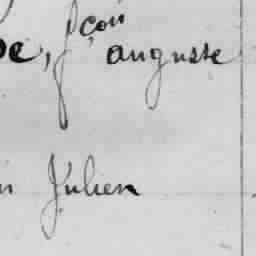 çon
auguste
Julien